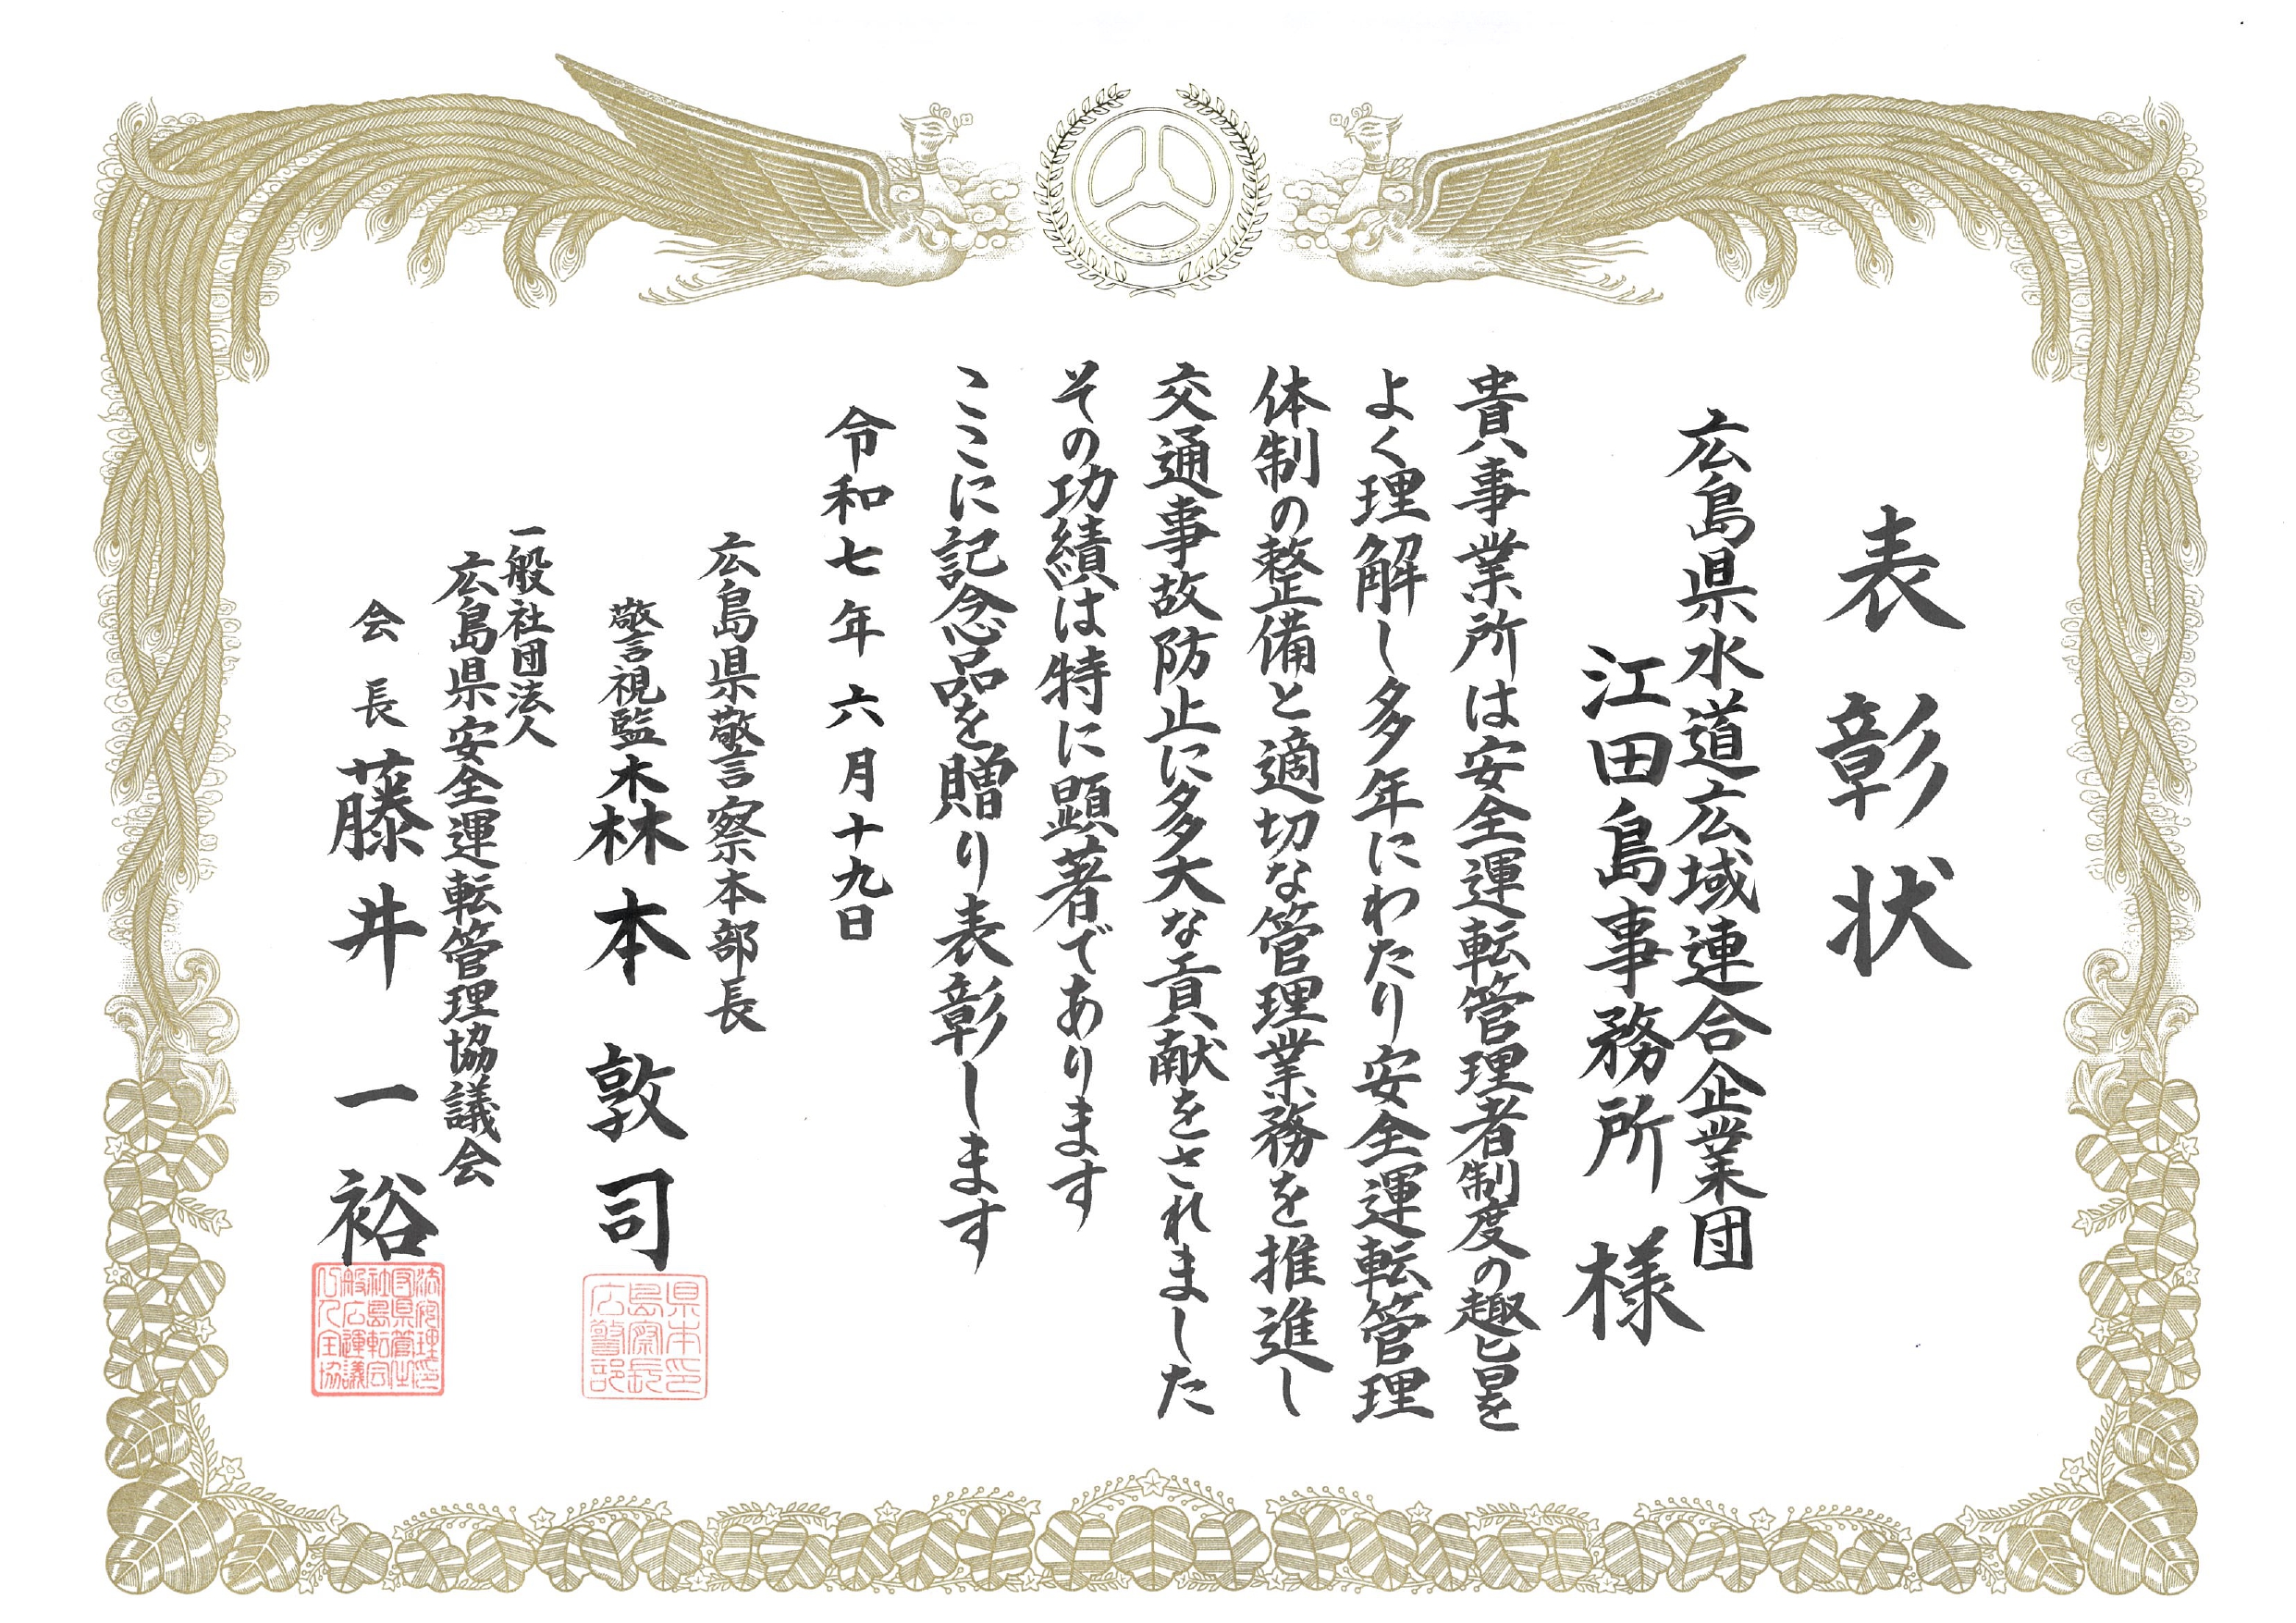 表彰状
広島県水道広域連合企業団
江田島事務所 様
貴事業所は安全運転管理者制度の趣旨を
よく理解し多年にわたり安全運転管理
体制の整備と適切な管理業務を推進し
交通事故防止に多大な貢献をされました
その功績は特に顕著であります
ここに記念品を贈り表彰します
令和七年六月十九日
広島県警察本部長
警視監 森本敦司
一般社団法人
広島県安全運転管理協議会
会長 藤井一裕
広島県警察本部長印